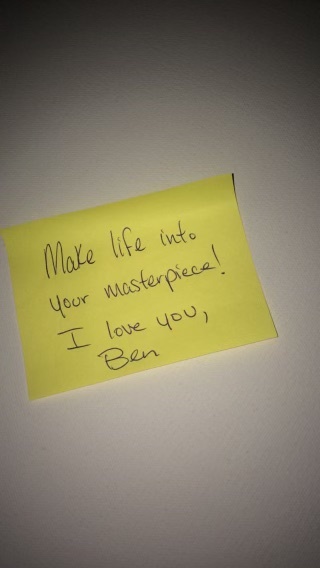 Make life into
your masterpiece!
I love you,
Ben